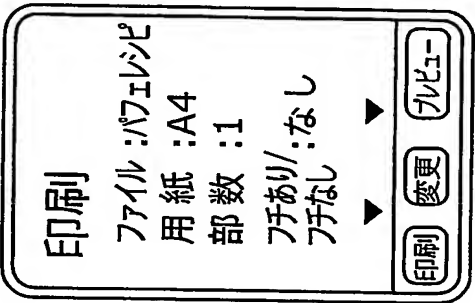 印刷
ファイル :パフェレシピ
用紙 :A4
部数 :1
フチあり/
フチなし :なし
印刷 変更 プレビュー